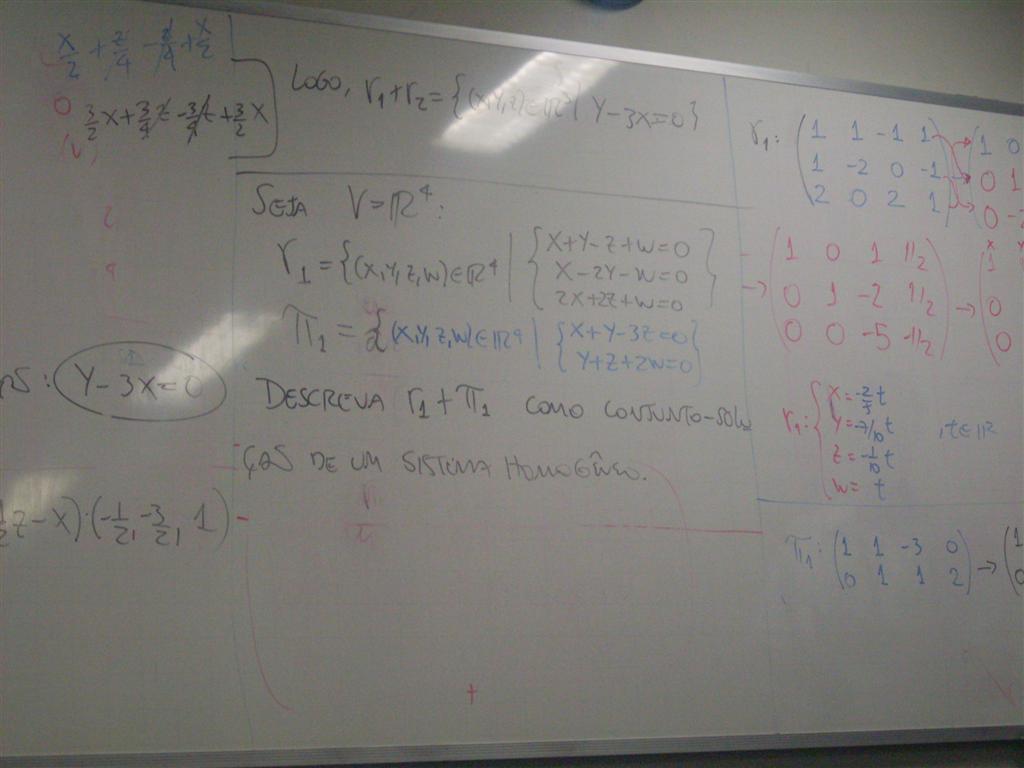 x/2 + z/4 - z/4 + x/2
0
3/2 x + 3/4 z - 3/4 z + 3/2 x
LOGO, r₁+r₂ = {(X,Y,Z) ∈ ℝ³ | Y-3X=0}
SEJA V=ℝ⁴:
r₁ = {(X,Y,Z,W) ∈ ℝ⁴ | { X+Y-Z+W=0
X-2Y-W=0
2X+2Z+W=0 }
π₁ = {(X,Y,Z,W) ∈ ℝ⁴ | { X+Y-3Z=0
Y+Z+2W=0 }
DESCREVA r₁+π₁ COMO CONJUNTO-SOLU
ÇÃO DE UM SISTEMA HOMOGÊNEO.
Y-3X=0
z-x)·(-1/2, -3/2, 1)
r₁: ( 1 1 -1 1
1 -2 0 -1
2 0 2 1 )
( 1 0
0 1
0 -2
→ ( 1 0 1 1/2
0 1 -2 1/2
0 0 -5 -1/2 ) →
x y
1
0
0
r₁: { X=-2/5 t
Y=-7/10 t , t∈ℝ
Z=-1/10 t
W= t
π₁: ( 1 1 -3 0
0 1 1 2 ) → ( 1
0